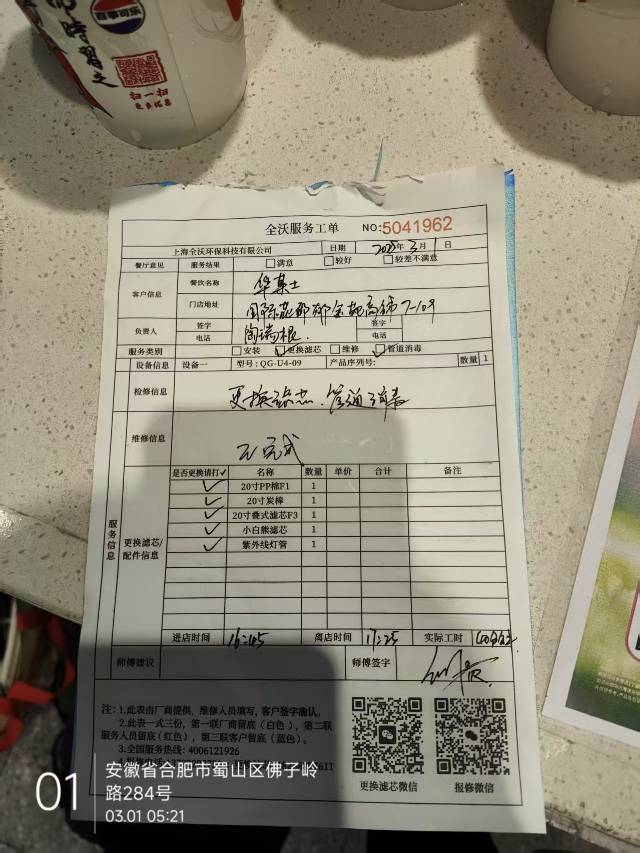 百事可乐
扫一扫
全沃服务工单 NO:5041962
上海全沃环保科技有限公司 日期 2025年3月1日
餐厅意见 服务结果 满意 较好 较差不满意
客户信息 餐饮名称 华莱士
门店地址
负责人 签字 陶瑞根 签字
电话 电话
服务类别 安装 更换滤芯 维修 管道消毒
设备信息 设备一 型号: QG-U4-09 产品序列号: 数量 1
检修信息 更换滤芯、管道消毒
维修信息 已完成
服务信息
更换滤芯/配件信息
是否更换请打✓ 名称 数量 单价 合计 备注
✓ 20寸PP棉F1 1
✓ 20寸炭棒 1
✓ 20寸叠式滤芯F3 1
✓ 小白熊滤芯 1
✓ 紫外线灯管 1
进店时间 16:45 离店时间 17:25 实际工时 40分钟
师傅建议 师傅签字
注: 1.此表由厂商提供, 维修人员填写, 客户签字确认。
2.此表一式三份, 第一联厂商留底(白色), 第二联
服务人员留底(红色), 第三联客户留底(蓝色)。
3.全国服务热线: 4006121926
更换滤芯微信 报修微信
01 安徽省合肥市蜀山区佛子岭
路284号
03.01 05:21